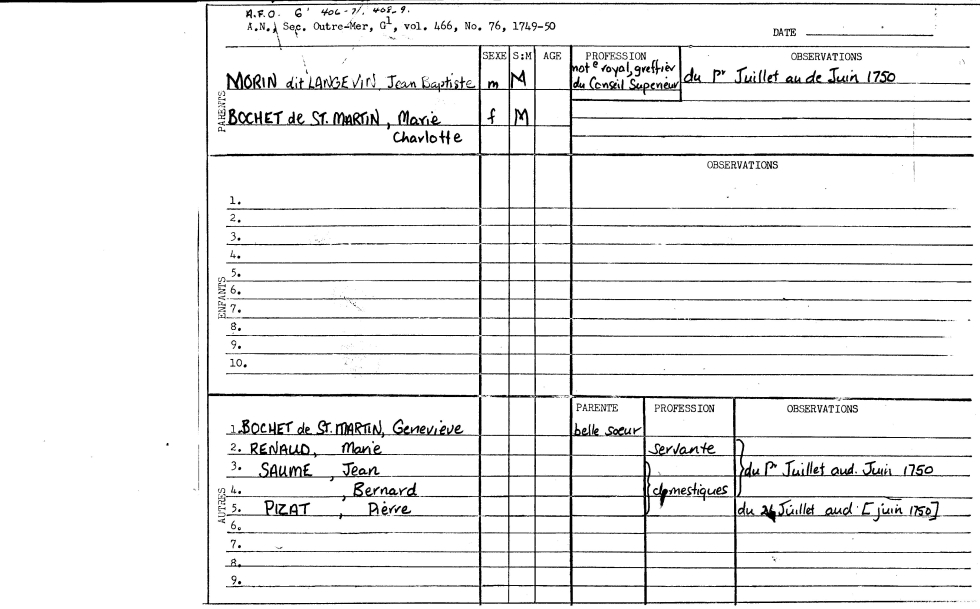 A.F.O. G¹ 406-7/. 408-9.
A.N., Sec. Outre-Mer, G¹, vol. 466, No. 76, 1749-50
DATE
SEXE S:M AGE PROFESSION OBSERVATIONS
PARENTS
MORIN dit LANGEVIN, Jean Baptiste m M notᵉ royal, greffier du Conseil Superieur du Pʳ Juillet au de Juin 1750
BOCHET de ST. MARTIN, Marie Charlotte f M
OBSERVATIONS
ENFANTS
1.
2.
3.
4.
5.
6.
7.
8.
9.
10.
PARENTE PROFESSION OBSERVATIONS
AUTRES
1. BOCHET de ST. MARTIN, Geneviève belle soeur
2. RENAUD, Marie servante
3. SAUME, Jean du Pʳ Juillet aud. Juin 1750
4. , Bernard domestiques
5. PIZAT, Pièrre du 24 Juillet aud. [juin 1750]
6.
7.
8.
9.